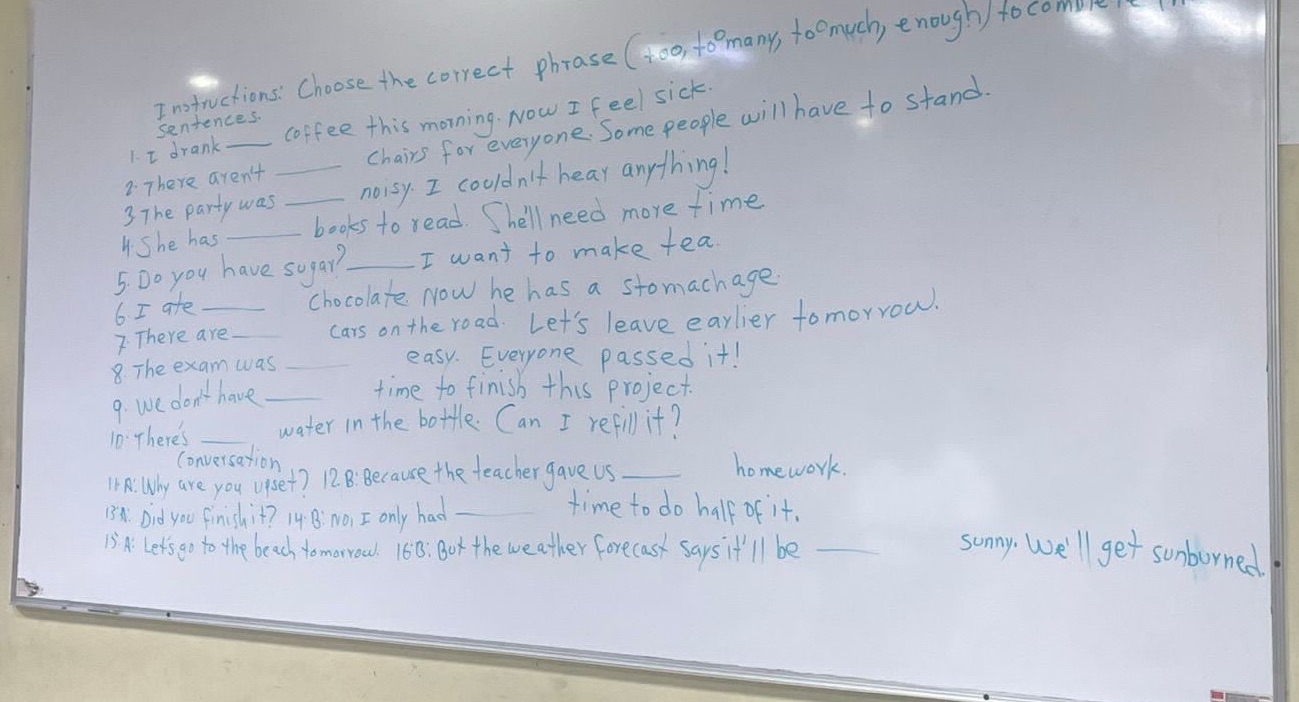 Instructions: Choose the correct phrase (too, too many, too much, enough) to complete the
sentences.
1. I drank ___ coffee this morning. Now I feel sick.
2. There aren't ___ chairs for everyone. Some people will have to stand.
3 The party was ___ noisy. I couldn't hear anything!
4. She has ___ books to read. She'll need more time
5. Do you have sugar? ___ I want to make tea.
6. I ate ___ chocolate. Now he has a stomachage.
7. There are ___ cars on the road. Let's leave earlier tomorrow.
8. The exam was ___ easy. Everyone passed it!
9. We don't have ___ time to finish this project.
10. There's ___ water in the bottle. Can I refill it?
Conversation
11 A: Why are you upset? 12 B: Because the teacher gave us ___ homework.
13 A: Did you finish it? 14. B: No, I only had ___ time to do half of it.
15. A: Let's go to the beach tomorrow. 16 B: But the weather forecast says it'll be ___ sunny. We'll get sunburned.